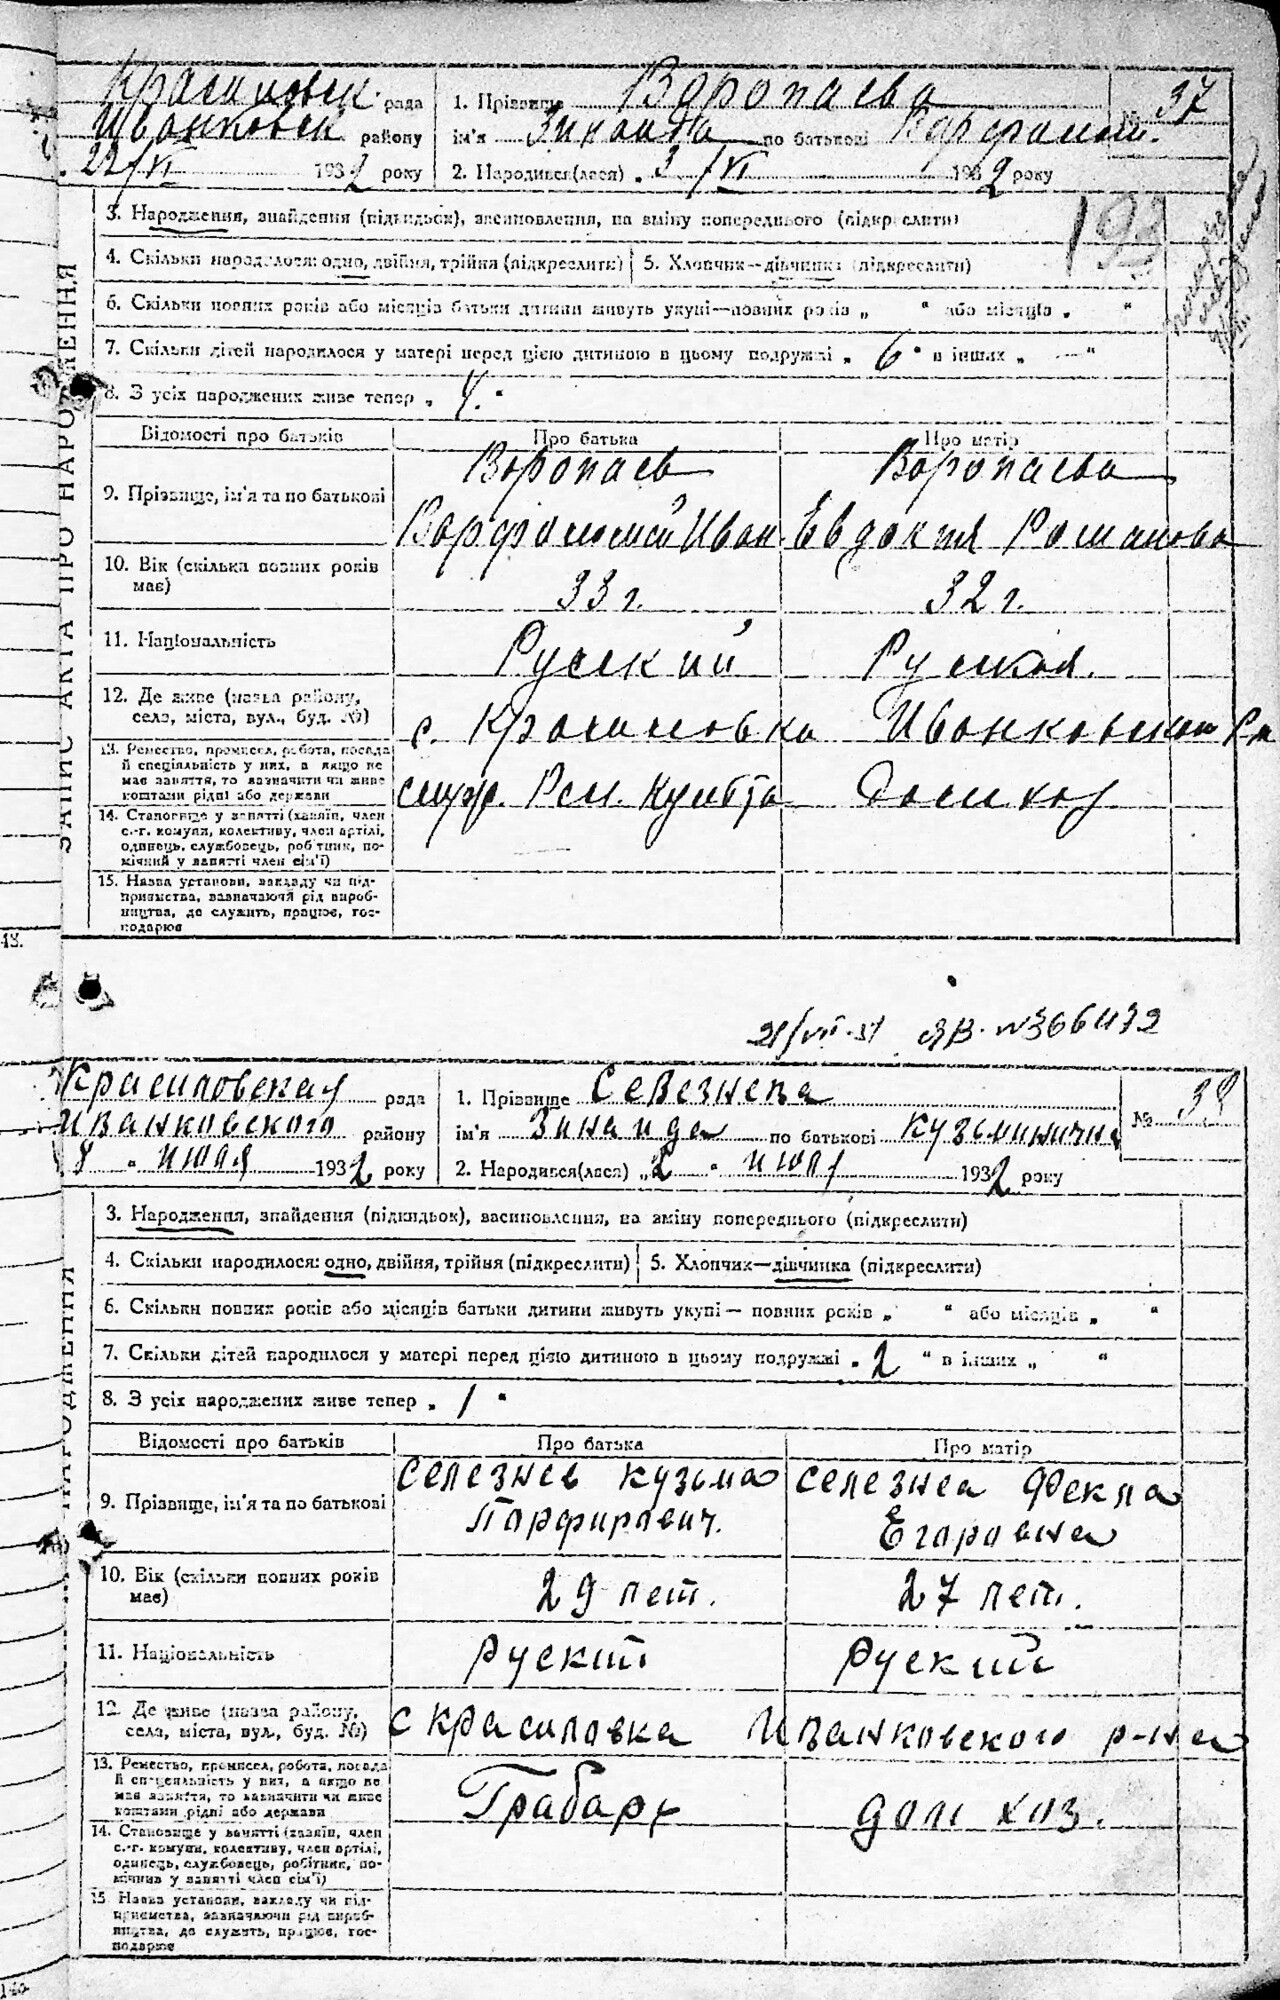 Красиловск. рада 1. Прізвище Воропаева № 37
Иванковск району ім'я Зинаида по батькові Варфолом.
22/VI 1932 року 2. Народився(лася) „ 3/VI 1932 року
193
3. Народження, знайдення (підкидьок), всиновлення, на зміну попереднього (підкреслити)
4. Скільки народилося: одно, двійня, трійня (підкреслити) 5. Хлопчик—дівчинка (підкреслити)
6. Скільки повних років або місяців батьки дитини живуть укупі—повних років „ “ або місяців „ “
7. Скільки дітей народилося у матері перед цією дитиною в цьому подружжі „ 6 “ в інших „ — “
8. З усіх народжених живе тепер „ 4. “
ЗАПИС АКТА ПРО НАРОДЖЕННЯ
Відомості про батьків Про батька Про матір
9. Прізвище, ім'я та по батькові Воропаев Воропаева
Варфоломей Иван Евдокия Романова
10. Вік (скілька повних років має) 33 г. 32 г.
11. Національність Руский Руская.
12. Де живе (назва району, села, міста, вул., буд. №) с. Красиловка Иванковском
13. Ремество, промисел, робота, посада
й спеціяльність у них, а якщо не
має заняття, то зазначити чи живе
коштами рідні або держави служ. домхоз
14. Становище у занятті (хазяїн, член
с.-г. комуни, колективу, член артілі,
одинець, службовець, робітник, по-
мічний у занятті член сім'ї)
15. Назва установи, закладу чи під-
приємства, зазначаючи рід вироб-
ництва, де служить, працює, гос-
подарює
21/VII-51 ЯВ. №366432
Красиловская рада 1. Прізвище Селезнева № 38
Иванковского району ім'я Зинаида по батькові Кузьминична
8 „ июля 1932 року 2. Народився(лася) „ 2 “ июля 1932 року
3. Народження, знайдення (підкидьок), васиновлення, на зміну попереднього (підкреслити)
4. Скільки народилося: одно, двійня, трійня (підкреслити) 5. Хлопчик—дівчинка (підкреслити)
6. Скільки повних років або місяців батьки дитини живуть укупі — повних років „ “ або місяців „ “
7. Скільки дітей народилося у матері перед цією дитиною в цьому подружжі „ 2 “ в інших „ “
8. З усіх народжених живе тепер „ 1 “
НАРОДЖЕННЯ
Відомості про батьків Про батька Про матір
9. Прізвище, ім'я та по батькові Селезнев Кузьма Селезнеа Фекла
Парфирович. Егаровна
10. Вік (скільки повних років має) 29 лет. 27 лет.
11. Національність руский руский
12. Де живе (назва району, села, міста, вул., буд. №) с Красиловка Иванковского р-на
13. Ремество, промисел, робота, посада
й спеціяльність у них, а якщо не
має заняття, то зазначити чи живе
коштами рідні або держави Грабарь дом хоз.
14. Становище у занятті (хазяїн, член
с.-г. комуни, колективу, член артілі,
одинець, службовець, робітник, по-
мічник у занятті член сім'ї)
15. Назва установи, закладу чи під-
приємства, зазначаючи рід вироб-
ництва, де служить, працює, гос-
подарює